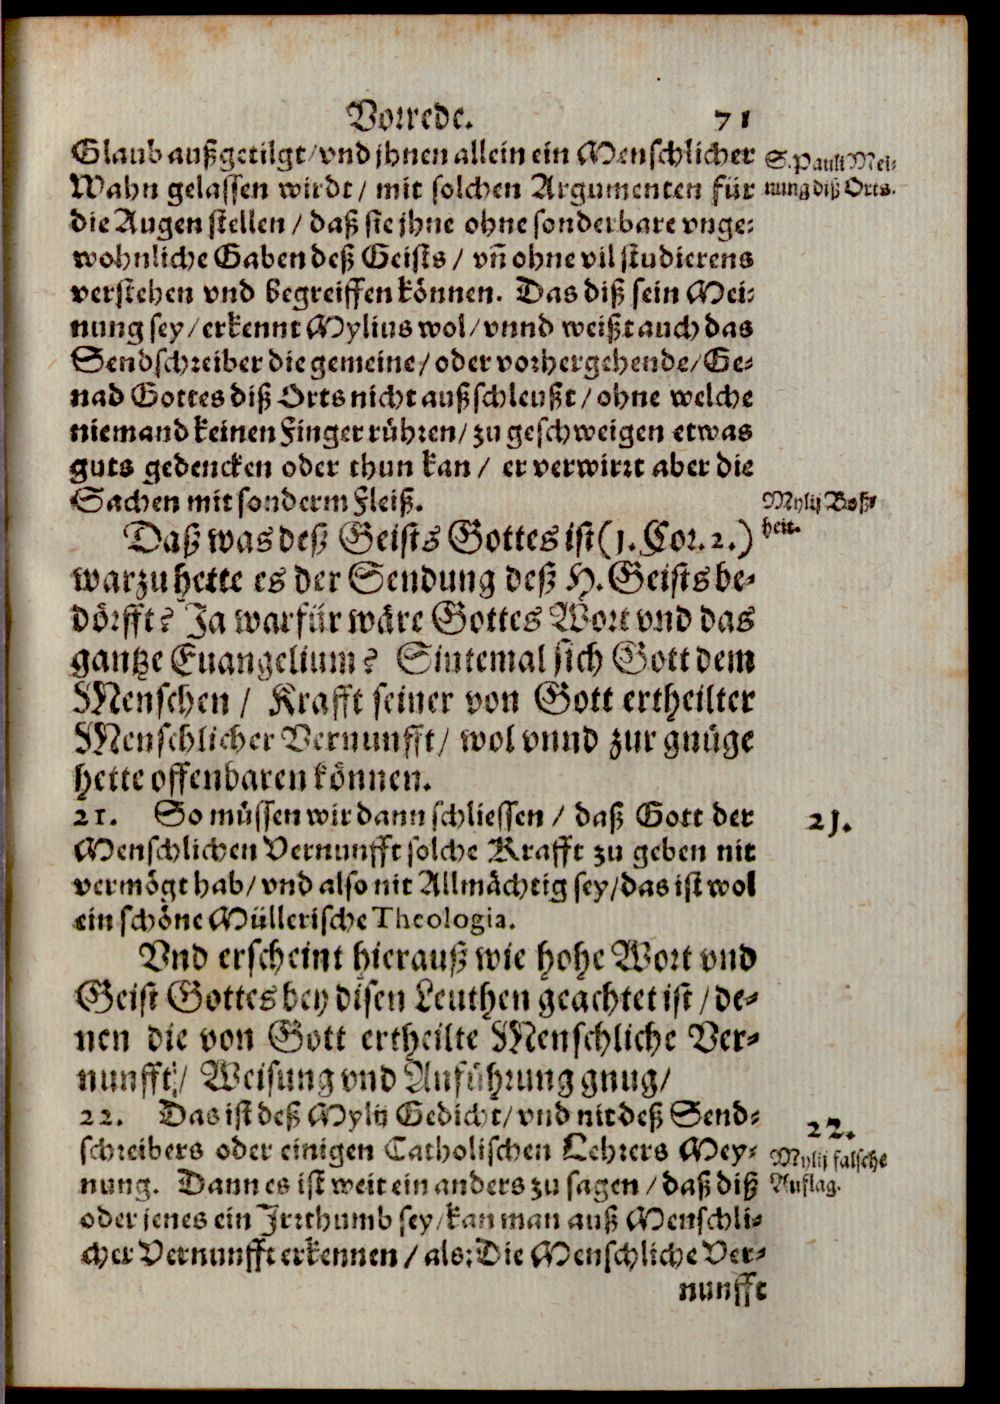 Vorrede. 71
Glaub außgetilgt/vnd jhnen allein ein Menschlicher
Wahn gelassen wirdt/ mit solchen Argumenten für
die Augen stellen/ daß sie jhne ohne sonderbare vnge-
wohnliche Gaben deß Geists/ vñ ohne vil studierens
verstehen vnd begreiffen können. Das diß sein Mei-
nung sey/erkennt Mylius wol/vnnd weißt auch das
Sendschreiber die gemeine/ oder vorhergehende/Ge-
nad Gottes diß Orts nicht außschleußt/ohne welche
niemand keinen Finger rühren/ zu geschweigen etwas
guts gedencken oder thun kan/ er verwirrt aber die
Sachen mit sonderm Fleiß.
S. Pauli Mei-
nung diß Orts.
Mylij Boß-
heit.
Daß was deß Geists Gottes ist (1. Cor. 2.)
warzu hette es der Sendung deß H. Geists be-
dörfft? Ja warfür wäre Gottes Wort vnd das
gantze Euangelium? Sintemal sich Gott dem
Menschen/ Krafft seiner von Gott ertheilter
Menschlicher Vernunfft/ wol vnnd zur gnüge
hette offenbaren können.
21. So müssen wir dann schliessen/ daß Gott der
Menschlichen Vernunfft solche Krafft zu geben nit
vermögt hab/ vnd also nit Allmächtig sey/das ist wol
ein schöne Müllerische Theologia.
21.
Vnd erscheint hierauß wie hohe Wort vnd
Geist Gottes bey disen Leuthen geachtet ist/de-
nen die von Gott ertheilte Menschliche Ver-
nunfft/ Weisung vnd Anführung gnug/
22. Das ist deß Mylij Gedicht/vnd nit deß Send-
schreibers oder einigen Catholischen Lehrers Mey-
nung. Dann es ist weit ein anders zu sagen/daß diß
oder jenes ein Irrthumb sey/kan man auß Menschli-
cher Vernunfft erkennen/ als: Die Menschliche Ver-
22.
Mylij falsche
Auflag.
nunfft